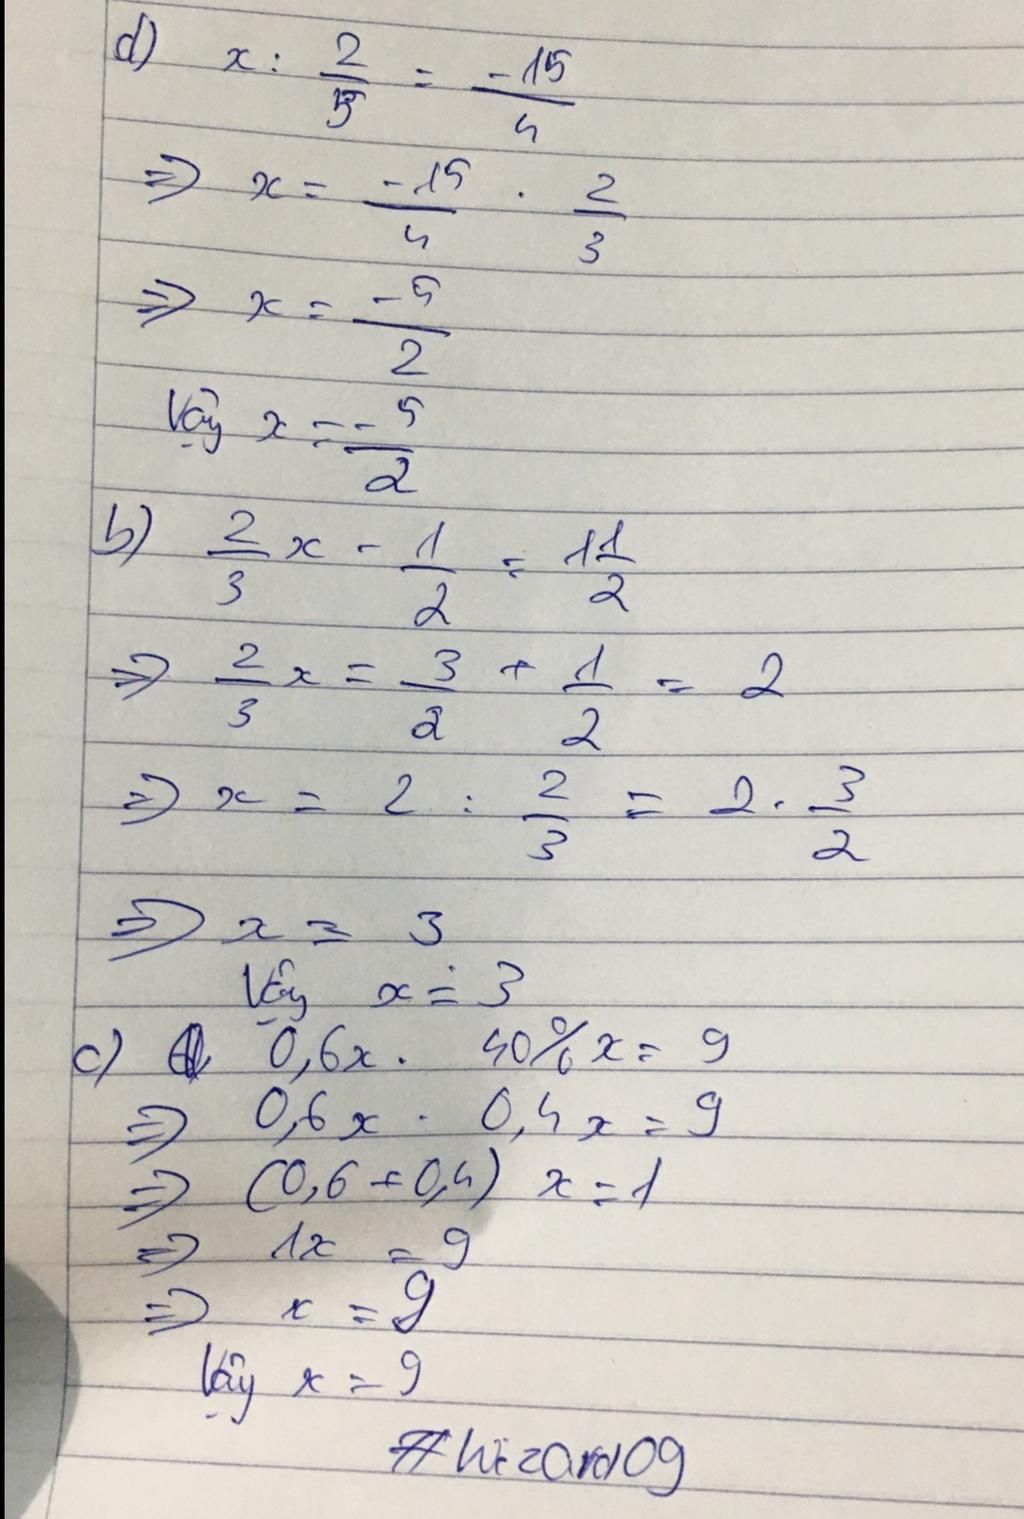 d) x : 2/5 = -15/4
=> x = -15/4 . 2/3
=> x = -5/2
Vậy x = -5/2
b) 2/3 x - 1/2 = 1 1/2
=> 2/3 x = 3/2 + 1/2 = 2
=> x = 2 : 2/3 = 2 . 3/2
=> x = 3
Vậy x = 3
c) 0,6x . 40% x = 9
=> 0,6x . 0,4x = 9
=> (0,6 + 0,4) x = 1
=> 1x = 9
=> x = 9
Vậy x = 9
#wizard09